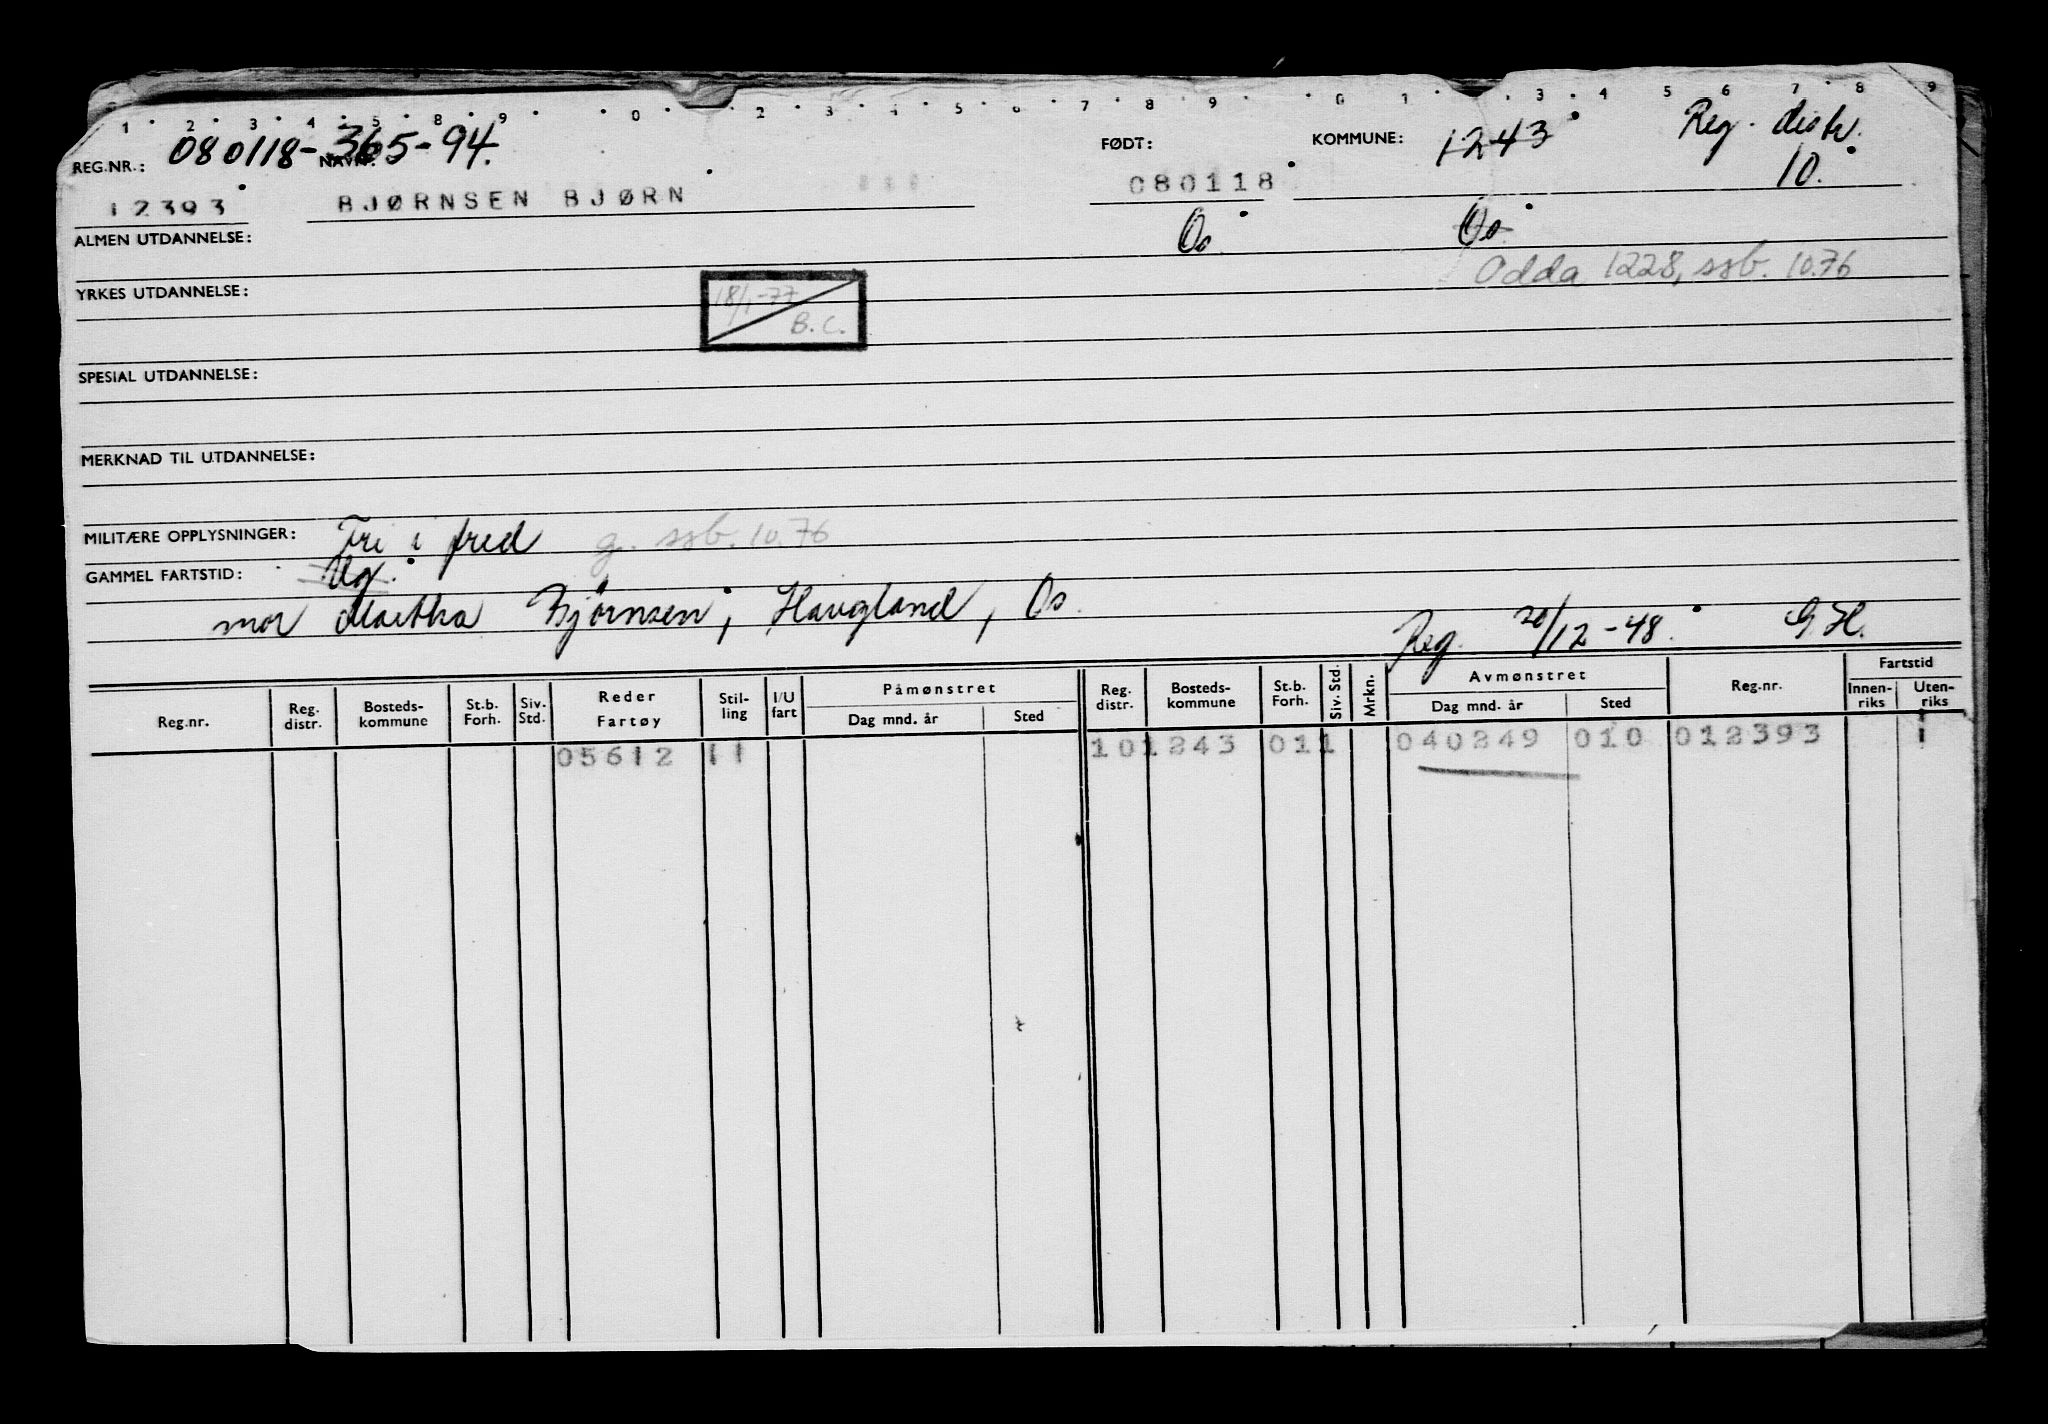 1 2 3 4 5 8 9 0 2 3 4 5 6 7 8 9 0 1 3 4 5 6 7 8 9
REG.NR.: 080118-365-94. NAVN: FØDT: KOMMUNE: 1243 Reg. distr.
12393 BJØRNSEN BJØRN 080118 10.
ALMEN UTDANNELSE: Os Os
Odda 1228, ssb. 10.76
YRKES UTDANNELSE: 18/1-77
B.C.
SPESIAL UTDANNELSE:
MERKNAD TIL UTDANNELSE:
MILITÆRE OPPLYSNINGER: Fri i fred g. ssb. 10.76
GAMMEL FARTSTID: Ug.
mor Martha Bjørnsen, Haugland, Os.
Reg. 20/12-48. G.H.
Reg.nr. Reg. distr. Bosteds-kommune St.b. Forh. Siv. Std. Reder Fartøy Stil-ling I/U fart Påmønstret Dag mnd. år Sted Reg. distr. Bosteds-kommune St.b. Forh. Siv. Std. Mrkn. Avmønstret Dag mnd. år Sted Reg.nr. Fartstid Innen-riks Uten-riks
05612 11 10 1243 01 1 040249 010 012393 1